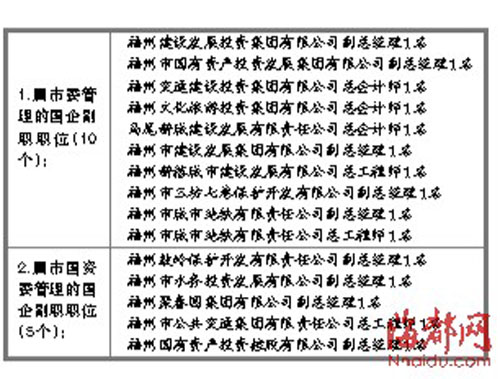 1.属市委管
理的国企副
职职位(10
个):
福州建设发展投资集团有限公司副总经理1名
福州市国有资产投资发展集团有限公司副总经理1名
福州交通建设投资集团有限公司总会计师1名
福州文化旅游投资集团有限公司总会计师1名
马尾新城建设发展有限责任公司总会计师1名
福州市建设发展集团有限公司副总经理1名
福州新榕城市建设发展有限公司总工程师1名
福州市三坊七巷保护开发有限公司副总经理1名
福州市城市地铁有限责任公司副总经理1名
福州市城市地铁有限责任公司总工程师1名
2.属市国资
委管理的国
企副职职位
(5个):
福州鼓岭保护开发有限公司副总经理1名
福州市水务投资发展有限公司副总经理1名
福州聚春园集团有限公司副总经理1名
福州市公共交通集团有限责任公司总工程师1名
福州国有资产投资控股有限公司副总经理1名
海都网
Nhaidu.com